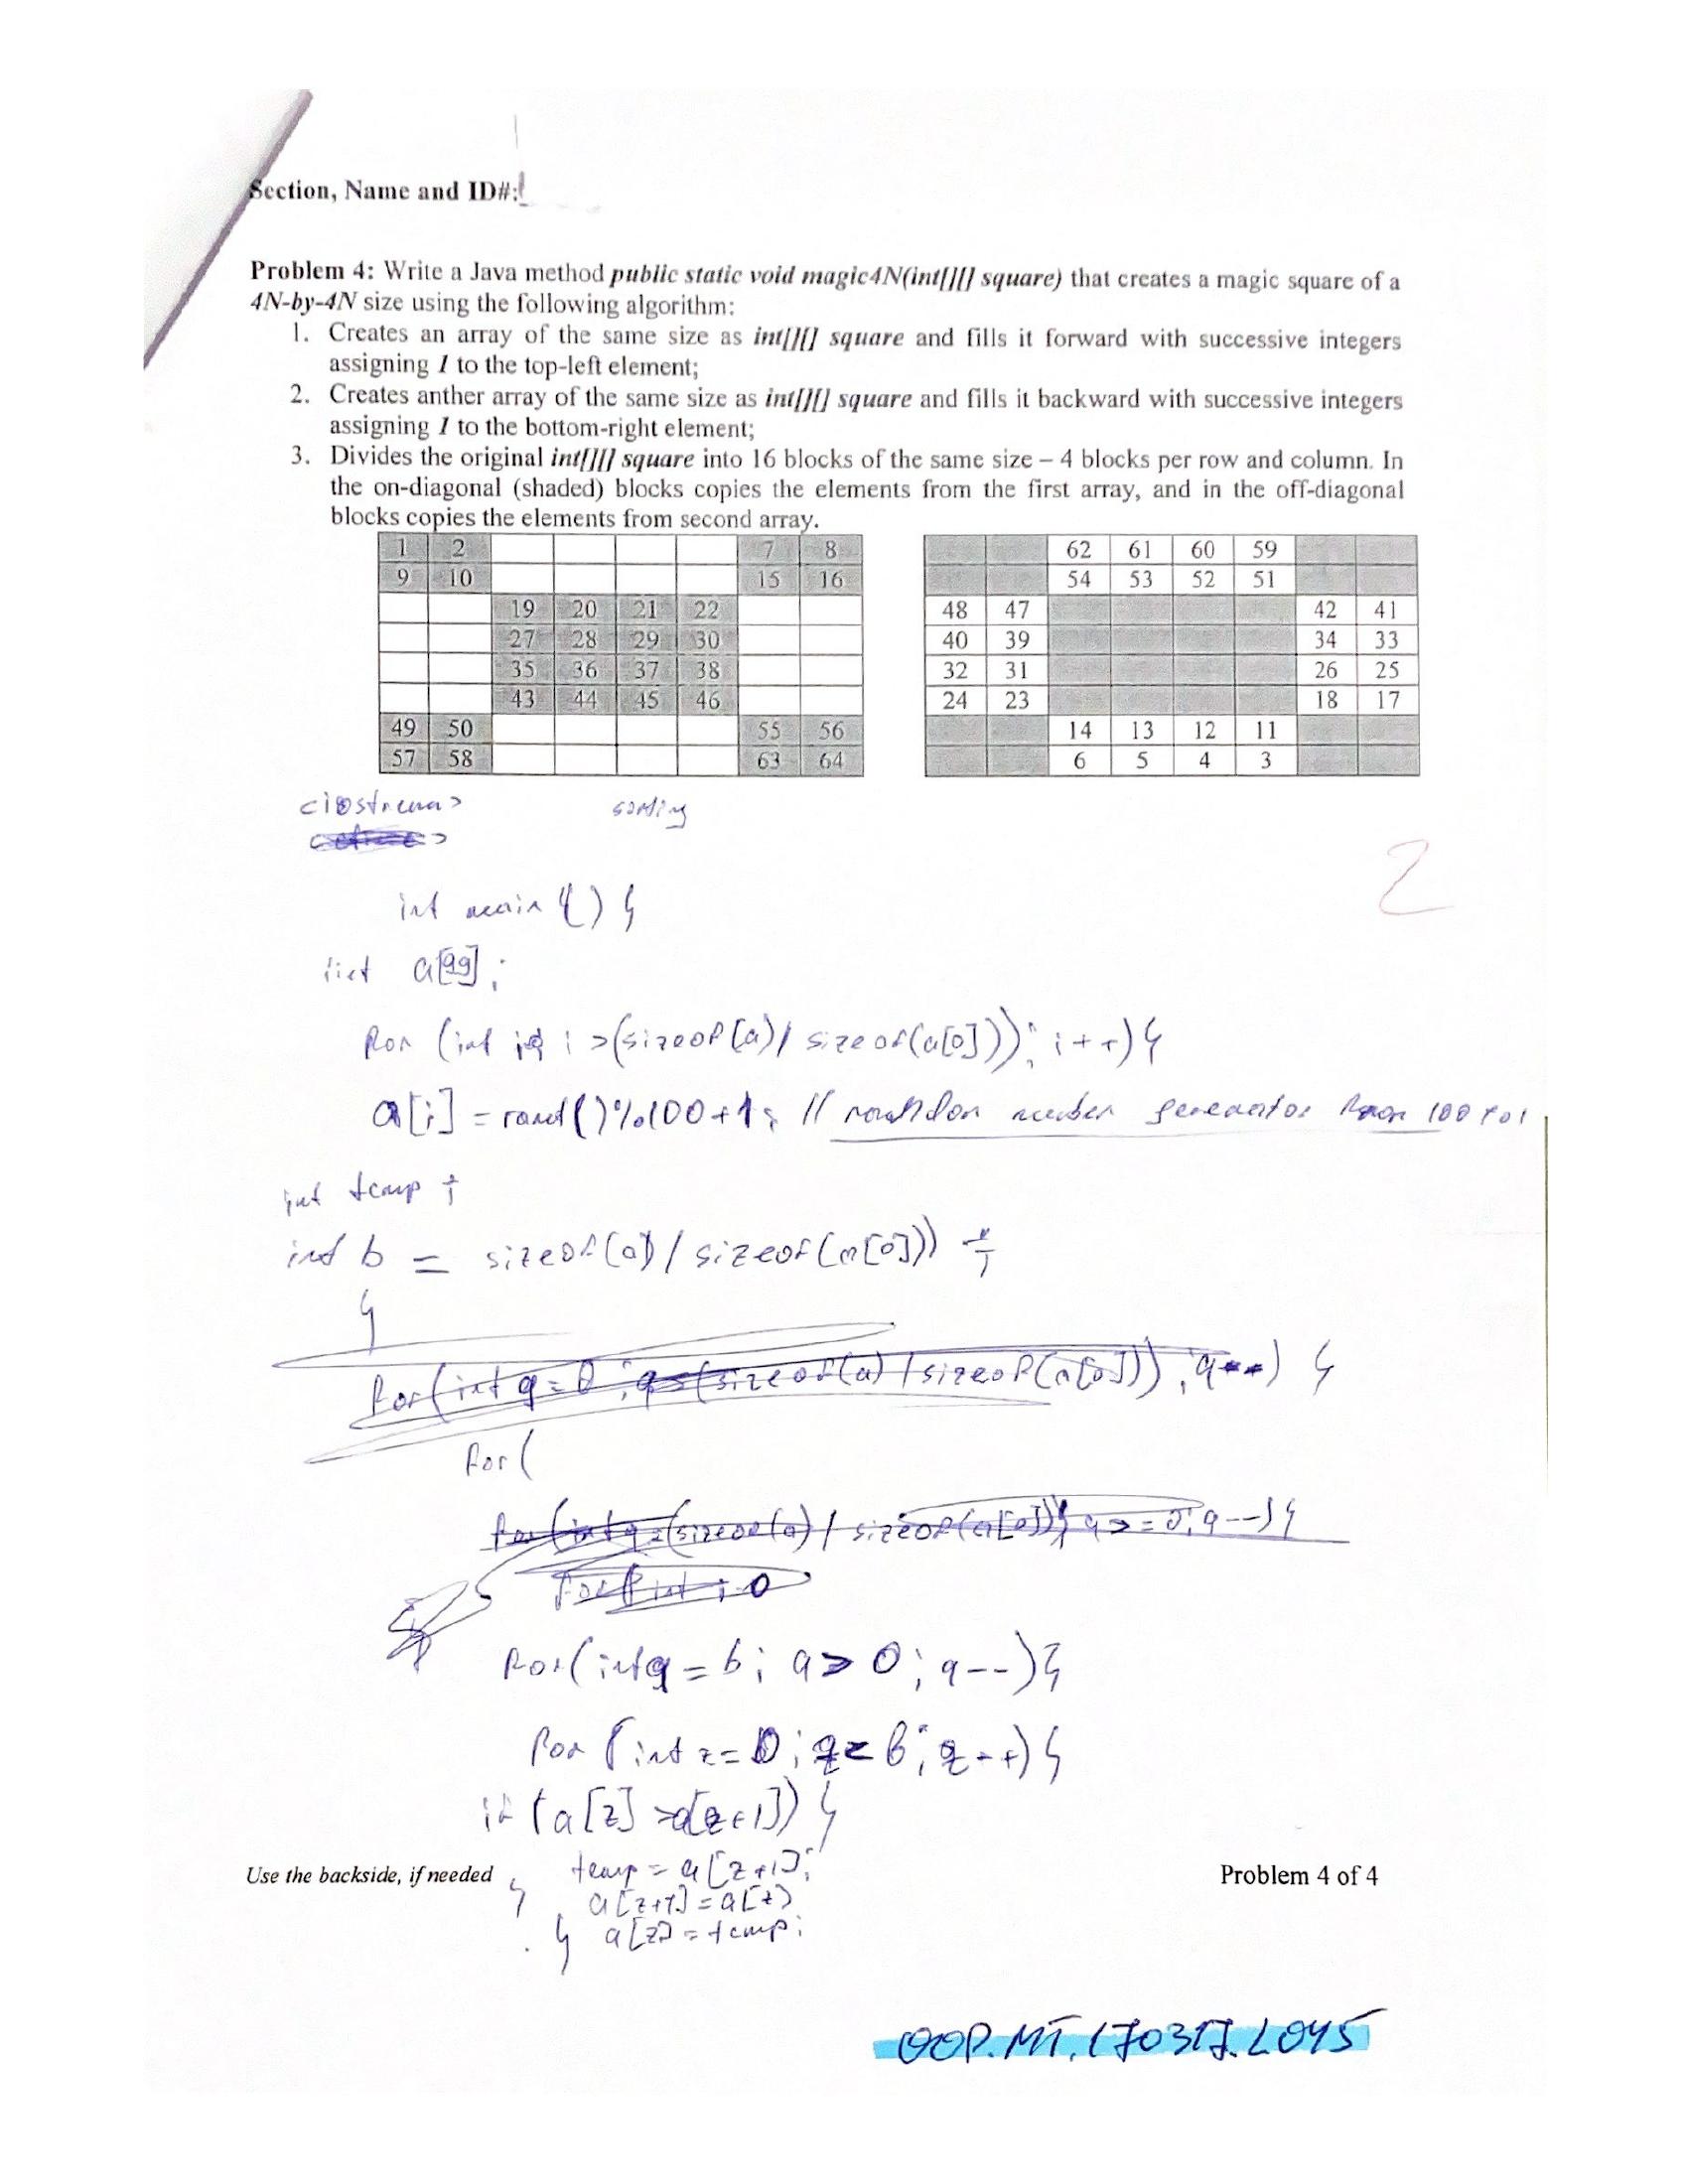 Section, Name and ID#:
Problem 4: Write a Java method public static void magic4N(int[][] square) that creates a magic square of a
4N-by-4N size using the following algorithm:
1. Creates an array of the same size as int[][] square and fills it forward with successive integers
assigning 1 to the top-left element;
2. Creates anther array of the same size as int[][] square and fills it backward with successive integers
assigning 1 to the bottom-right element;
3. Divides the original int[][] square into 16 blocks of the same size – 4 blocks per row and column. In
the on-diagonal (shaded) blocks copies the elements from the first array, and in the off-diagonal
blocks copies the elements from second array.
1 2 7 8 62 61 60 59
9 10 15 16 54 53 52 51
19 20 21 22 48 47 42 41
27 28 29 30 40 39 34 33
35 36 37 38 32 31 26 25
43 44 45 46 24 23 18 17
49 50 55 56 14 13 12 11
57 58 63 64 6 5 4 3
<iostream> sorting
2
int main () {
int a[99];
for (int i=0 i >(sizeof(a)/ sizeof(a[0])); i++) {
a[i] = rand()%100+1; // number generator from 100 to 1
int temp ;
int b = sizeof(a)/sizeof(a[0])) ;
}
for(int q=0; (sizeof(a)/sizeof(a[0])); q++) {
for(
for(int q=(sizeof(a)/sizeof(a[0])); q>=0; q--){
for(int i 0
for(int q=b; q>0; q--){
for (int z=0; z<b; z++){
if (a[z] >a[z+1]) {
temp = a[z+1];
a[z+1] = a[z]
a[z] = temp;
}
}
Use the backside, if needed
Problem 4 of 4
OOP.MT.170317.L045